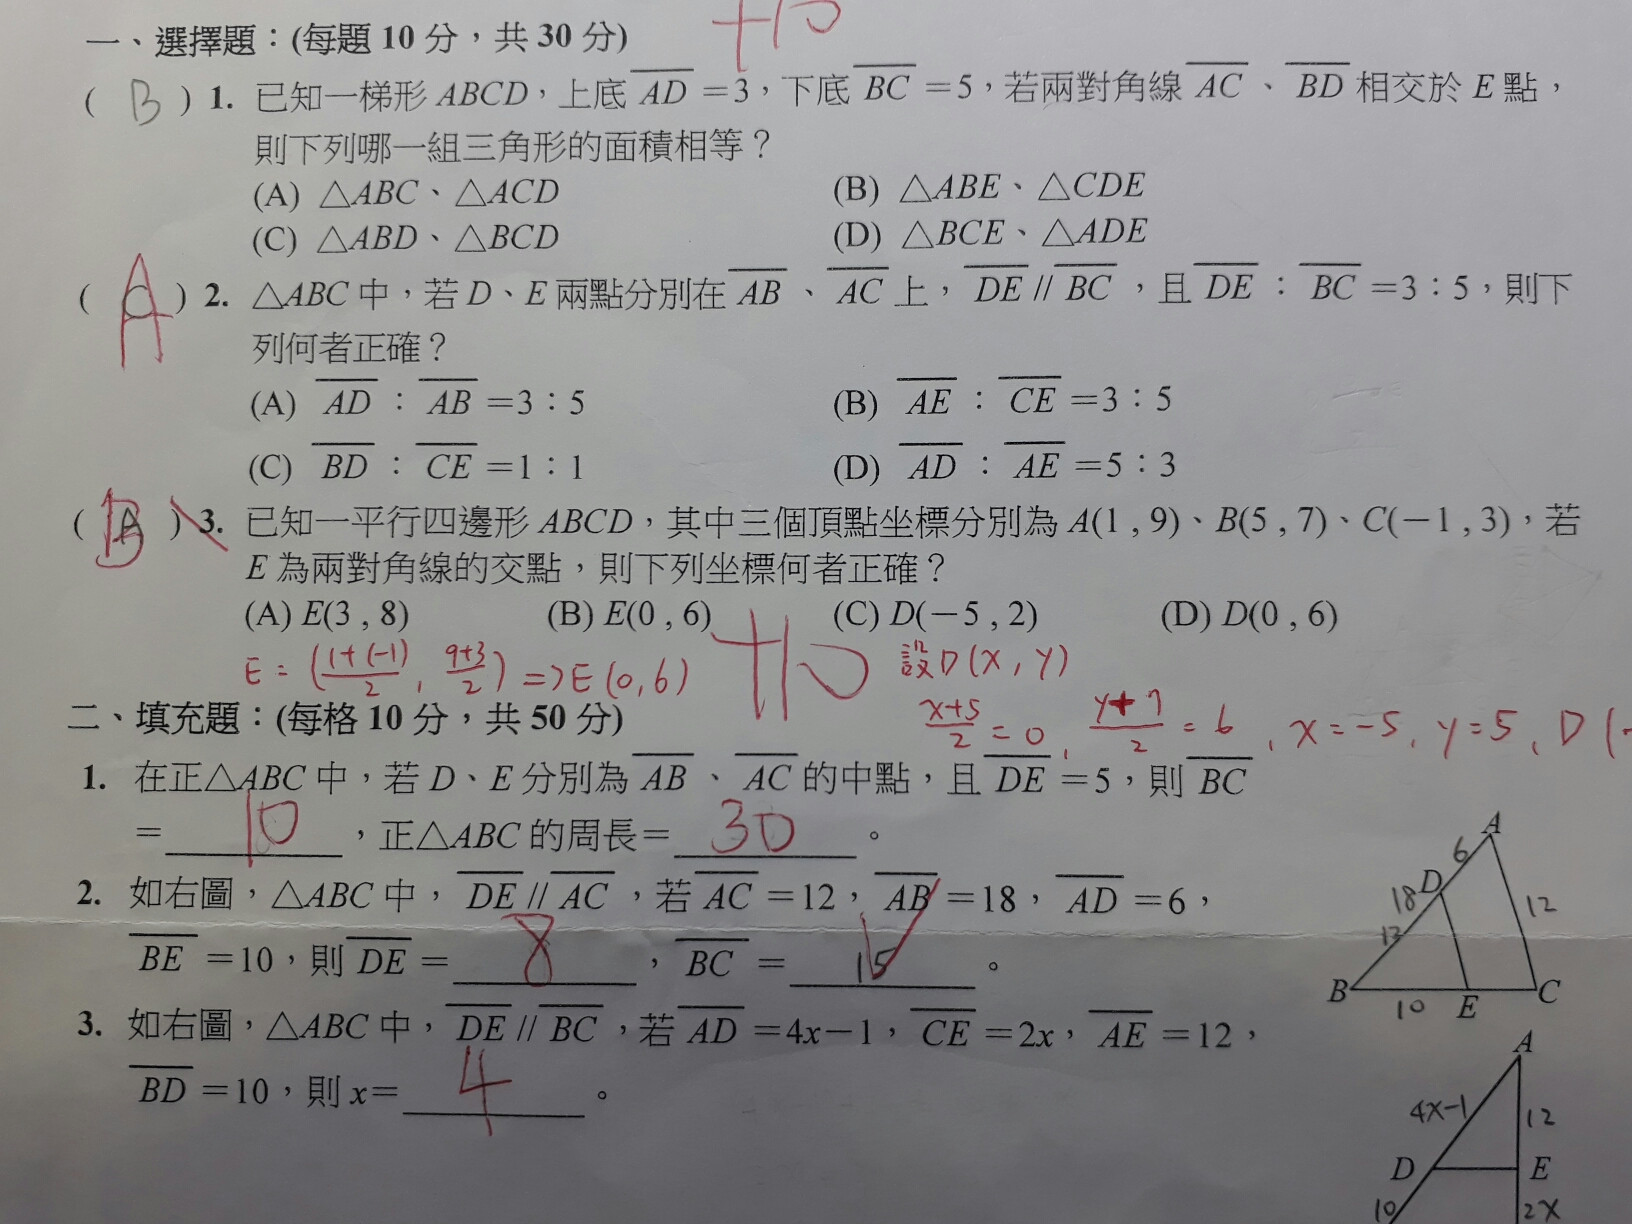 +10
一、選擇題：(每題 10 分，共 30 分)
( B ) 1. 已知一梯形 ABCD，上底 AD =3，下底 BC =5，若兩對角線 AC 、 BD 相交於 E 點，
則下列哪一組三角形的面積相等？
(A) △ABC、△ACD (B) △ABE、△CDE
(C) △ABD、△BCD (D) △BCE、△ADE
( A ) 2. △ABC 中，若 D、E 兩點分別在 AB 、 AC 上， DE // BC ，且 DE ： BC =3：5，則下
列何者正確？
(A) AD ： AB =3：5 (B) AE ： CE =3：5
(C) BD ： CE =1：1 (D) AD ： AE =5：3
( B ) 3. 已知一平行四邊形 ABCD，其中三個頂點坐標分別為 A(1 , 9)、B(5 , 7)、C(－1 , 3)，若
E 為兩對角線的交點，則下列坐標何者正確？
(A) E(3 , 8) (B) E(0 , 6) (C) D(－5 , 2) (D) D(0 , 6)
E = (1+(-1)/2 , 9+3/2) => E (0,6) +10 設D(x , y)
x+5/2 = 0 , y+7/2 = 6 , x = -5 , y = 5 , D (-
二、填充題：(每格 10 分，共 50 分)
1. 在正△ABC 中，若 D、E 分別為 AB 、 AC 的中點，且 DE =5，則 BC
= 10 ，正△ABC 的周長= 30 。
2. 如右圖，△ABC 中， DE // AC ，若 AC =12， AB =18， AD =6，
BE =10，則 DE = 8 ， BC = 15 。
3. 如右圖，△ABC 中， DE // BC ，若 AD =4x－1， CE =2x， AE =12，
BD =10，則 x= 4 。
A
6
D
18
12
12
B
10
E
C
A
4x-1
12
D
E
10
2x